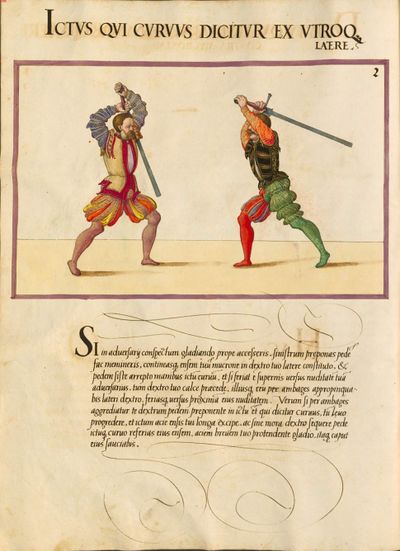 ICTVS QVI CVRVVS DICITVR EX VTROQ
LATERE.
2
SI in adversarÿ conspectum gladiando prope accesseris, sinistrum preponas pede
fac memineris, contineasq; ensem tuū mucrone in dextro tuo latere constituto. Et
pedem si iste arrepto manibus ictu curuū, et si feriat e supernis versus nuditatē tuā
adversarius, tum dextro tuo calce præcede, illiusq; reu per ambages appropinqua
bis lateri dextro, feriasq; versus proximā eius nuditatem. Verum si per ambages
aggrediatur te dextrum pedem preponente in ictu et qui dicitur curuus, tu leuo
progredere, et ictum acie ensis tui longa excipe, ac sine mora dextro sequere pede
ictuq; curuo referias eius ensem, aciem breuem tuo protendente gladio, itaq; caput
eius sauciatus.